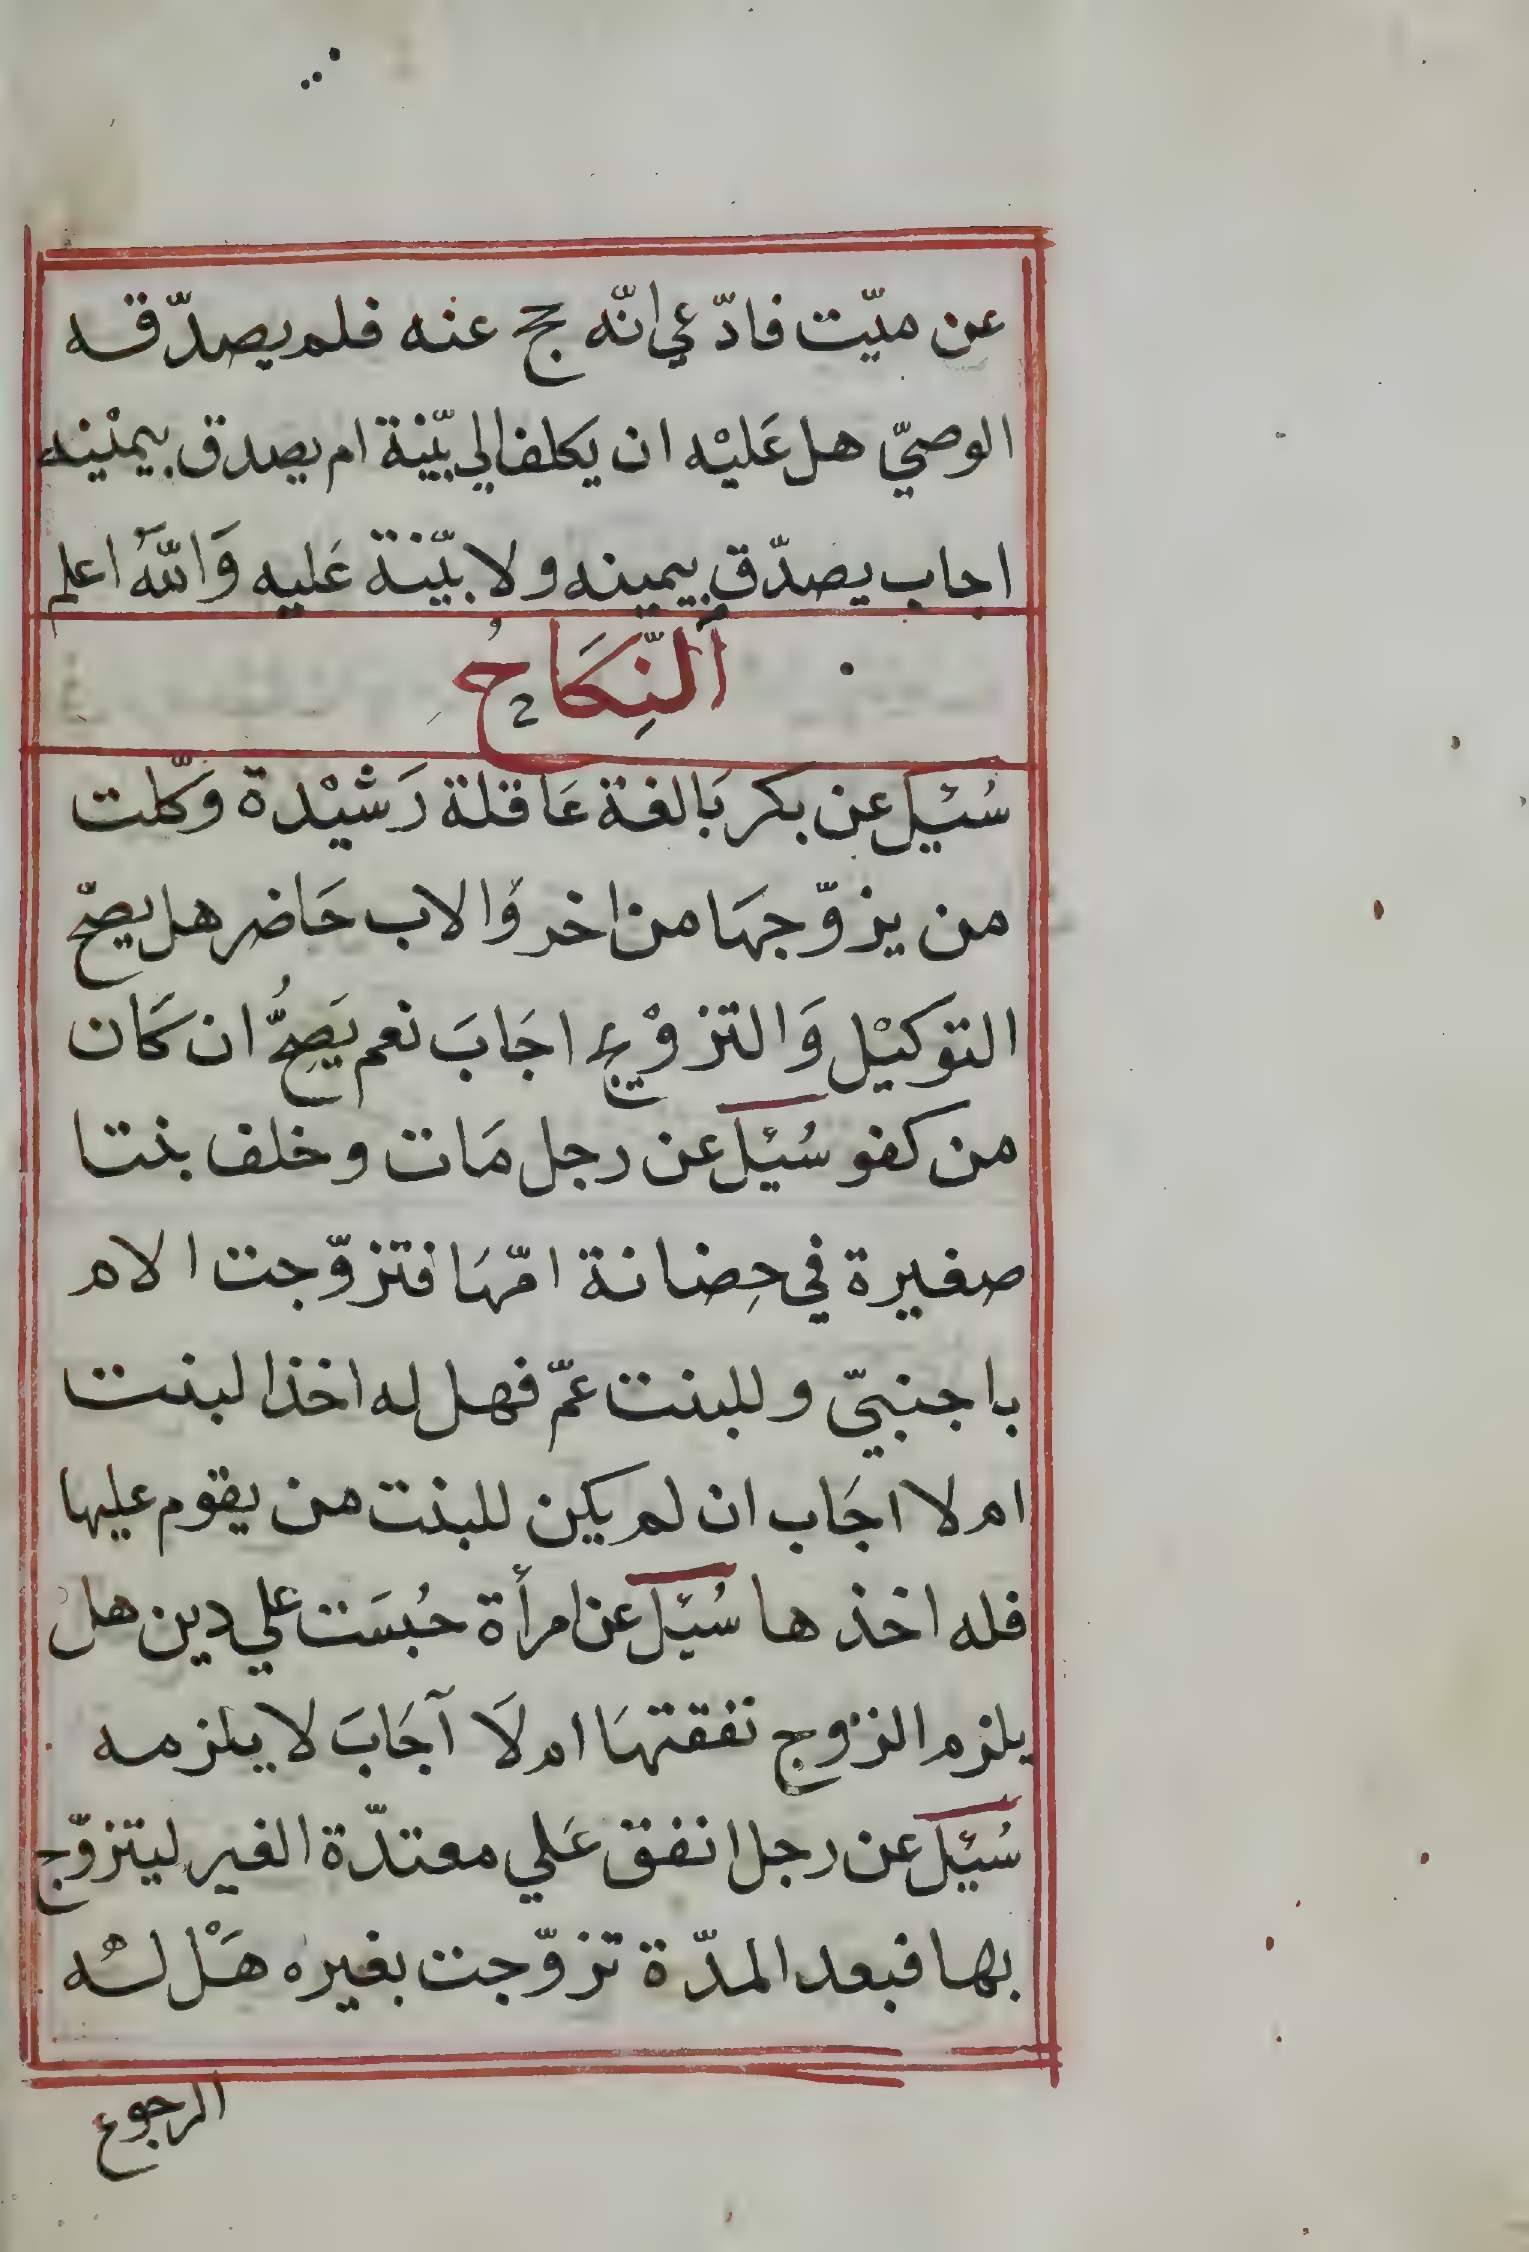 عن ميّت فادّعي انّه حج عنه فلم يصدّقه
الوصيّ هل عَليْه ان يكلف الي بيّنة ام يصدق بيميْنه
اجاب يصدّق بيمينه ولا بيّنة عَليه وَاللّٰهُ اعلم
اَلنِّكَاحُ
سُئِلَ عن بكر بَالغة عَاقلة رَشيْدة وكّلت
من يزوّجهَا من اخر وَالاب حَاضر هل يصحّ
التوكيْل وَالتزوْيج اجَابَ نعم يَصِحُّ ان كَان
من كفو سُئِلَ عن رجل مَات وخلف بنتا
صغيرة في حِضانة امّهَا فتزوّجت الام
باجنبيّ وللبنت عمّ فهل له اخذ البنت
ام لا اجَاب ان لم يكن للبنت من يقوم عليها
فله اخذها سُئِلَ عن امرأة حُبسَت علي دين هل
يلزم الزوج نفقتهَا ام لَا آجَابَ لا يلزمه
سُئِلَ عن رجل انفق عَلي معتدّة الغير ليتزوّج
بها فبعد المدّة تزوّجت بغيره هَلْ لهُ
الرجوع